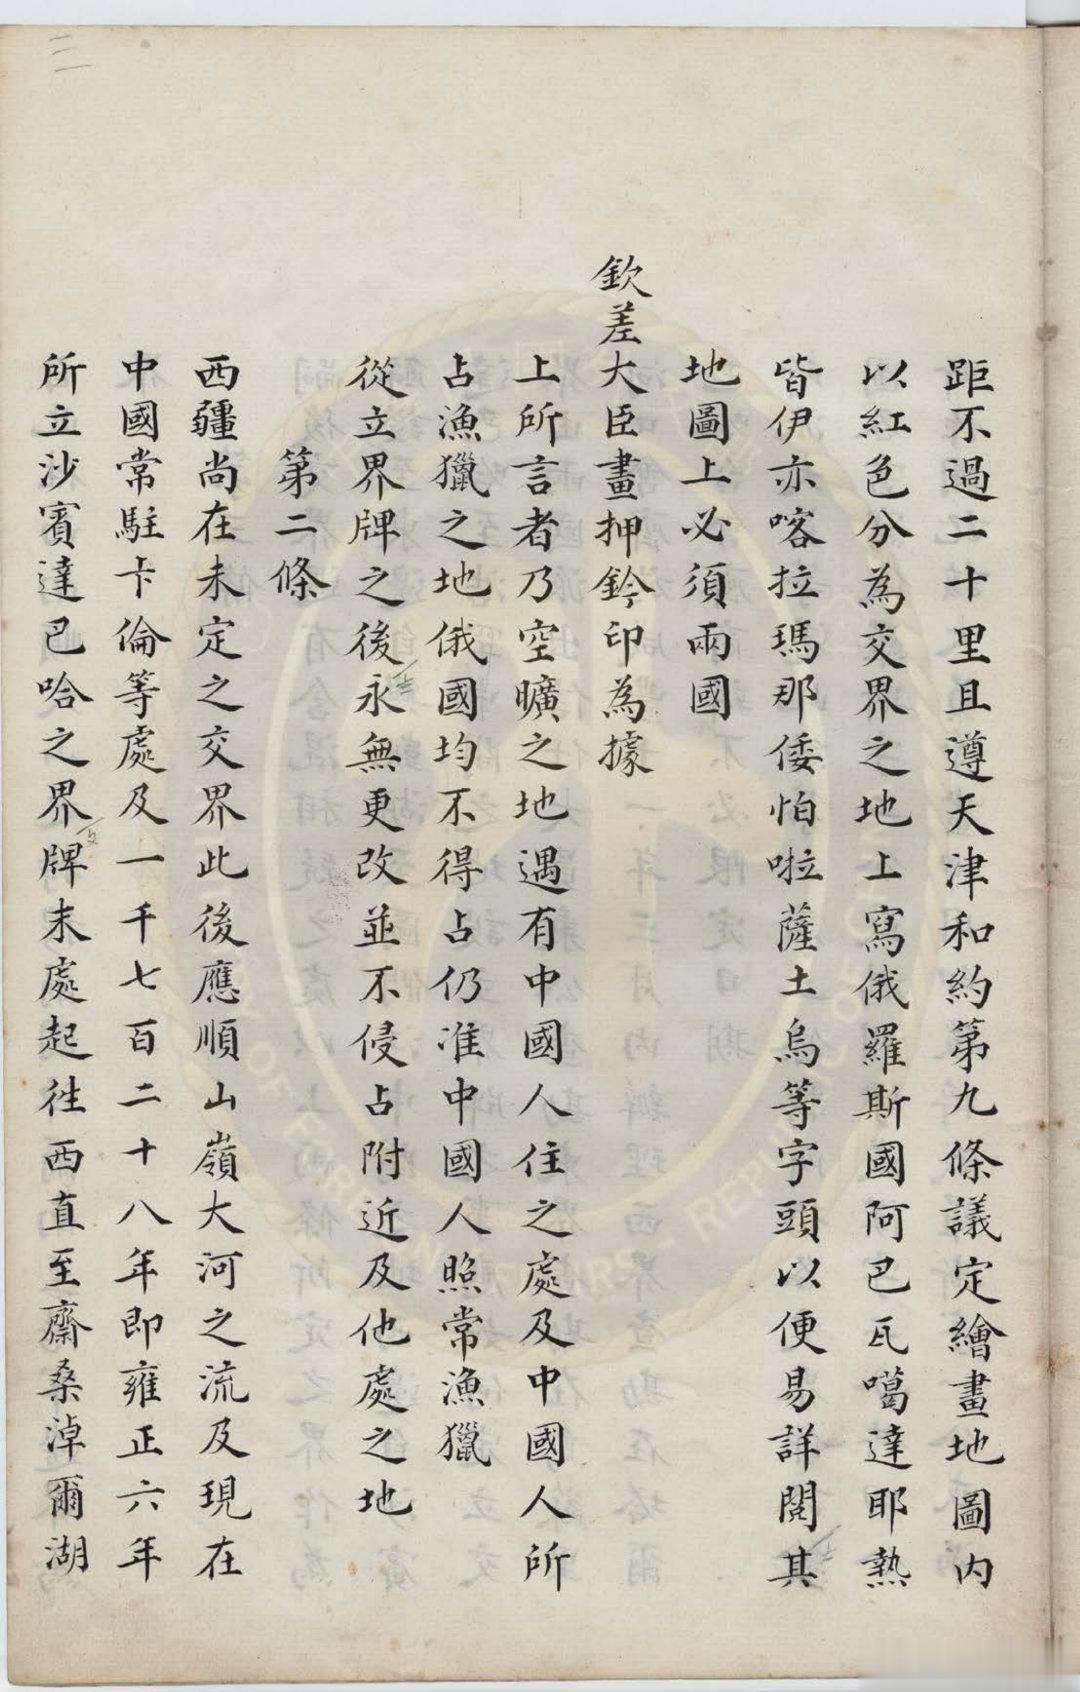 距不過二十里且遵天津和約第九條議定繪畫地圖内
以紅色分為交界之地上寫俄羅斯國阿巴瓦噶達耶熱
皆伊亦喀拉瑪那倭怕啦薩土烏等字頭以便易詳閱其
地圖上必須兩國
欽差大臣畫押鈐印為據
上所言者乃空曠之地遇有中國人住之處及中國人所
占漁獵之地俄國均不得占仍准中國人照常漁獵
從立界牌之後永無更改並不侵占附近及他處之地
第二條
西疆尚在未定之交界此後應順山嶺大河之流及現在
中國常駐卡倫等處及一千七百二十八年即雍正六年
所立沙賓達巴哈之界牌末處起徃西直至齋桑淖爾湖
三